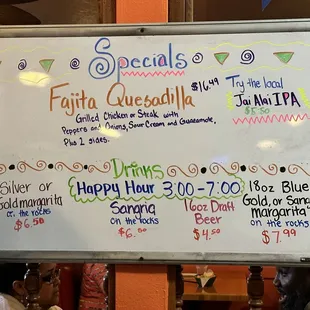 Specials
Fajita Quesadilla $16.49
Grilled Chicken or Steak with
Peppers and Onions, Sour Cream and Guacamole,
Plus 2 sides.
Try the local
Jai Alai IPA
$5.50
Drinks
Happy Hour 3:00-7:00
Silver or
Gold margarita
on the rocks
$6.50
Sangria
on the rocks
$6.50
16oz Draft
Beer
$4.50
18oz Blue,
Gold, or San
margarita's
on the rocks
$7.99